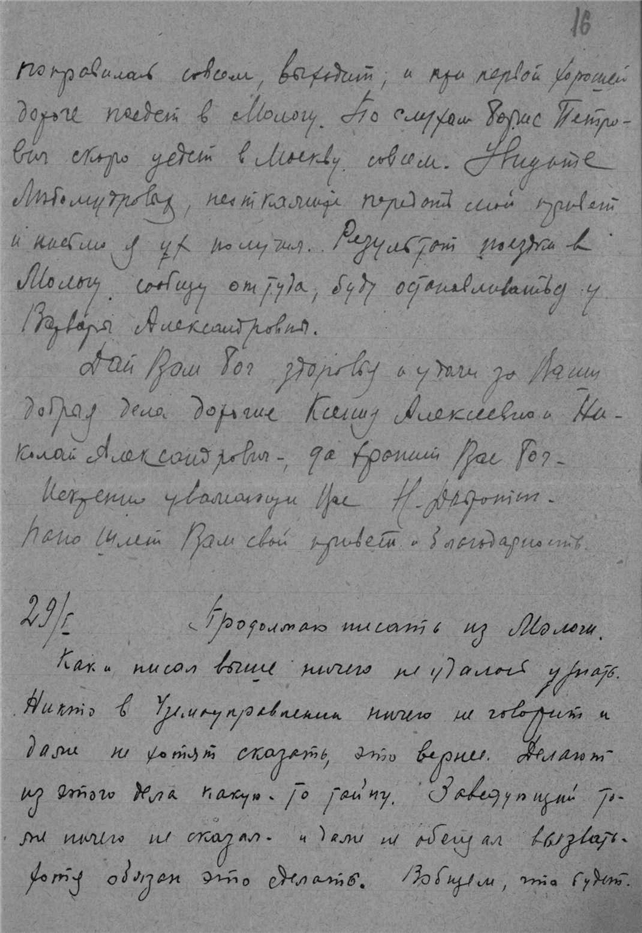 16
поправилась совсем, выходит, и при первой хорошей
дороге поедет в Мологу. По слухам Борис Петро-
вич скоро уедет в Москву совсем.
передать мой привет
и письмо я их получил. Результат поездки в
Мологу сообщу оттуда, буду останавливаться у
Варвары Александровны.
Дай Вам Бог здоровья и удачи за Ваши
добрые дела дорогие Ксения Алексеевна и Ни-
колай Александрович, да хранит Вас Бог.
Искренно уважающий Вас Н.
Папа шлет Вам свой привет и благодарность.
29/I Продолжаю писать из Мологи.
Как и писал выше ничего не удалось узнать.
Никто в Уземуправлении ничего не говорит и
даже не хотят сказать, это вернее. Делают
из этого дела какую-то тайну. Заведующий то-
же ничего не сказал и даже не обещал вызвать.
хотя обязан это сделать. Вобщем, что будет.